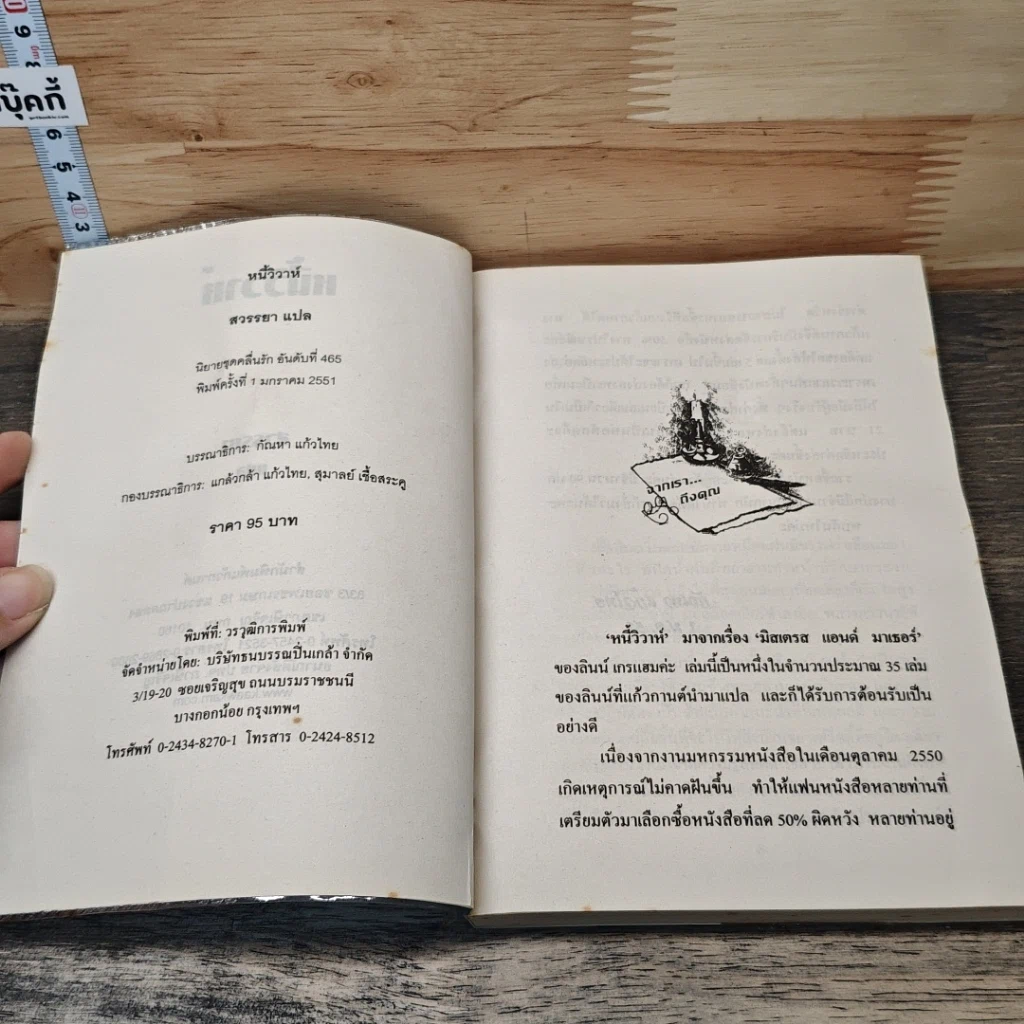 บุ๊คกี้
หนี้วิวาห์
สวรรยา แปล
นิยายชุดคลื่นรัก อันดับที่ 465
พิมพ์ครั้งที่ 1 มกราคม 2551
บรรณาธิการ: กัณหา แก้วไทย
กองบรรณาธิการ: แกล้วกล้า แก้วไทย, สุมาลย์ เชื้อสระคู
ราคา 95 บาท
พิมพ์ที่: วรวุฒิการพิมพ์
จัดจำหน่ายโดย: บริษัทธนบรรณปิ่นเกล้า จำกัด
3/19-20 ซอยเจริญสุข ถนนบรมราชชนนี
บางกอกน้อย กรุงเทพฯ
โทรศัพท์ 0-2434-8270-1 โทรสาร 0-2424-8512
จากเรา...
ถึงคุณ
'หนี้วิวาห์' มาจากเรื่อง 'มิสเตรส แอนด์ มาเธอร์'
ของลินน์ เกรแฮมค่ะ เล่มนี้เป็นหนึ่งในจำนวนประมาณ 35 เล่ม
ของลินน์ที่แก้วกานต์นำมาแปล และก็ได้รับการต้อนรับเป็น
อย่างดี
เนื่องจากงานมหกรรมหนังสือในเดือนตุลาคม 2550
เกิดเหตุการณ์ไม่คาดฝันขึ้น ทำให้แฟนหนังสือหลายท่านที่
เตรียมตัวมาเลือกซื้อหนังสือที่ลด 50% ผิดหวัง หลายท่านอยู่